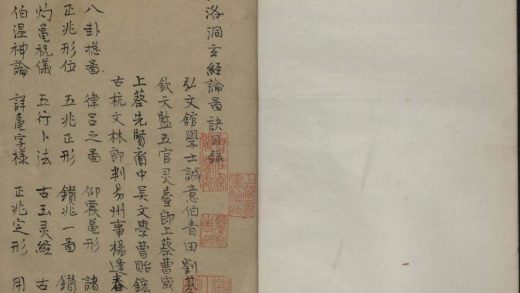 洛洞玄經論圖訣目錄
弘文舘學士誠意伯青田劉基
欽天監五官灵臺郎上蔡曹
上蔡先賢裔中吴文學曹貽
古杭文林郎判易州事楊逢春
八卦揔圖 律吕之圖 仰震亀形 諸
正兆形位 五兆正形 鑚兆一圖 鑚
灼亀祝儀 五行卜法 古玉灵經 古
伯温神論 詳亀字樣 正兆定形 用